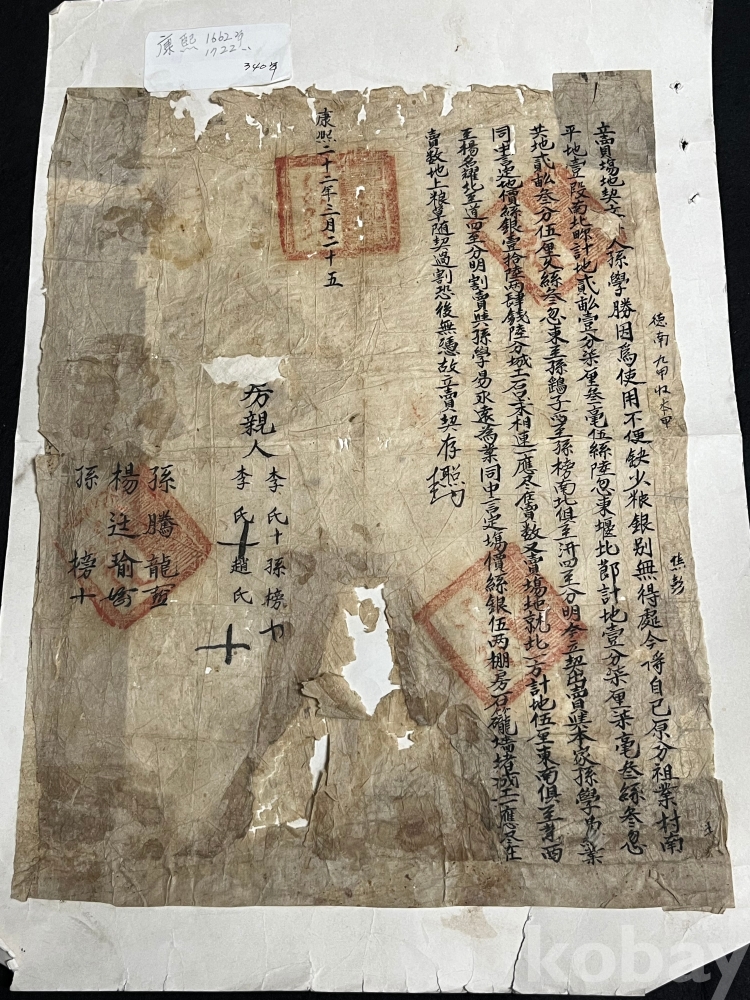 康熙 1662年
1722..
340年
立賣場地契文 人孫學勝因為使用不便缺少粮銀别無得處今将自己原分祖業村南
平地壹段南北畛計地貳畝壹分柒厘叁毫伍絲陸忽東堰北節計地壹分柒厘柒毫叁絲叁忽
共地貳畝叁分伍厘 絲叁忽東至孫鷂子西至孫榜南北俱至 四至分明今立契出賣與本家孫學易 業
同中言定地價絲銀壹拾陸两肆錢陸分城土石 相連一應尽在賣数又賣場地就北一方計地伍厘東南俱至 西
至楊名耀北至道四至分明割賣與孫學易永遠為業同中言定塲價絲銀伍两棚房石 墻堵 土一應尽在
賣数地上粮草随契過割恐後無憑故立賣契存照
康熙二十二年三月二十五
德南九甲收本甲
房親人
李氏十孫榜十
李氏十趙氏十
孫騰龍
楊 瑜
孫榜十
kobay